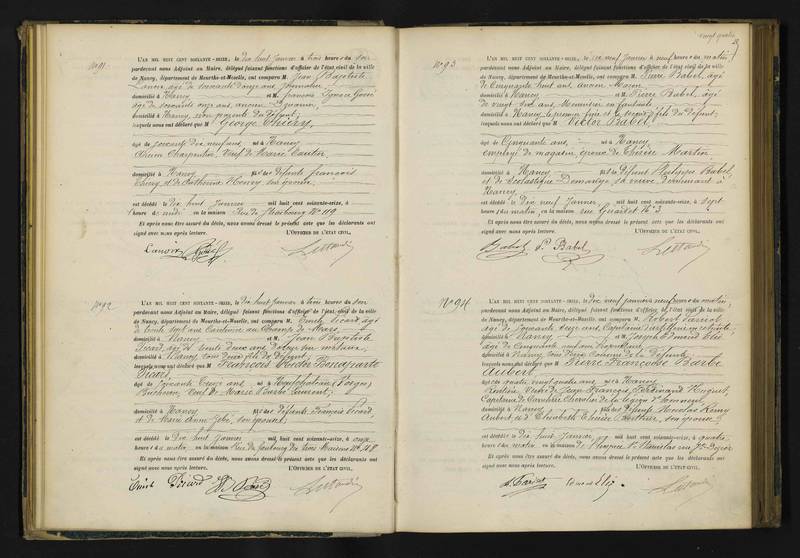 N° 91
L'AN MIL HUIT CENT SOIXANTE-SEIZE, le dix huit Janvier à trois heures du soir
pardevant nous Adjoint au Maire, délégué faisant fonctions d'officier de l'état civil de la ville
de Nancy, département de Meurthe-et-Moselle, ont comparu M. Jean Baptiste
âgé de soixante douze ans, Journalier
domicilié à Nancy et M. François
âgé de soixante onze ans, ancien
domicilié à Nancy, non parents du défunt,
lesquels nous ont déclaré que M George Thiéry,
âgé de soixante dix neuf ans, né à Nancy
Ancien Charpentier, Veuf de Marie
domicilié à Nancy fils des défunts François
Thiéry et de Catherine Henry son épouse.
est décédé le dix huit Janvier mil huit cent soixante-seize, à
heure de midi en la maison Rue de Strasbourg N° 119
Et après nous être assuré du décès, nous avons dressé le présent acte que les déclarants ont
signé avec nous après lecture. L'OFFICIER DE L'ÉTAT CIVIL,
N° 92
L'AN MIL HUIT CENT SOIXANTE-SEIZE, le dix huit Janvier à trois heures du soir
pardevant nous Adjoint au Maire, délégué faisant fonctions d'officier de l'état civil de la ville
de Nancy, département de Meurthe-et-Moselle, ont comparu M. Emile Picard, âgé
de trente sept ans
domicilié à Nancy et M. Jean Baptiste
Picard, âgé de trente deux ans
domicilié à Nancy, tous deux fils du défunt,
lesquels nous ont déclaré que M François Victor Bonaparte
Picard,
âgé de soixante ans, né à Neufchâteau (Vosges)
Veuf de Marie Barbe Laurent,
domicilié à Nancy fils des défunts François Picard
et de Marie Anne son épouse,
est décédé le dix huit Janvier mil huit cent soixante-seize, à onze
heures du matin en la maison Rue du faubourg des trois Maisons N° 48
Et après nous être assuré du décès, nous avons dressé le présent acte que les déclarants ont
signé avec nous après lecture. L'OFFICIER DE L'ÉTAT CIVIL,
Emile Picard
vingt quatre
N° 93
L'AN MIL HUIT CENT SOIXANTE-SEIZE, le dix neuf Janvier à neuf heures du matin
pardevant nous Adjoint au Maire, délégué faisant fonctions d'officier de l'état civil de la ville
de Nancy, département de Meurthe-et-Moselle, ont comparu M. Pierre Babel, âgé
de Cinquante huit ans ancien Marin
domicilié à Nancy et M. Pierre Babel, âgé
de vingt sept ans, Menuisier en fauteuils
domicilié à Nancy le premier frère et le second fils du défunt,
lesquels nous ont déclaré que M Victor Babel,
âgé de Cinquante ans, né à Nancy
employé de magasin, époux de Thérèse Martin
domicilié à Nancy fils des défunt Philippe Babel,
et de Scolastique Demange, sa veuve demeurant à
Nancy
est décédé le dix neuf Janvier mil huit cent soixante-seize, à sept
heures du matin, en la maison rue N° 3
Et après nous être assuré du décès, nous avons dressé le présent acte que les déclarants ont
signé avec nous après lecture. L'OFFICIER DE L'ÉTAT CIVIL,
Babel P. Babel
N° 94
L'AN MIL HUIT CENT SOIXANTE-SEIZE, le dix neuf Janvier neuf heures du matin,
pardevant nous Adjoint au Maire, délégué faisant fonctions d'officier de l'état civil de la ville
de Nancy, département de Meurthe-et-Moselle, ont comparu M. Robert
âgé de soixante ans, Capitaine d'artillerie en retraite
domicilié à Nancy et M. Joseph Edmond Elie
âgé de Cinquante
domicilié à Nancy tous deux Cousins de la Défunte
lesquels nous ont déclaré que M Pierre Françoise Barbe
Aubert,
âgée de quatre vingt quatre ans née à Nancy
Rentière, Veuve de Jean François Ferdinand Huguet,
Capitaine de Cavalerie Chevalier de la légion d'honneur,
domiciliée à Nancy fille des défunts Nicolas Remy
Aubert et d'Elisabeth son épouse
est décédée le dix huit Janvier mil huit cent soixante-seize, à quatre
heures du matin en la maison de l'hospice St Stanislas
Et après nous être assuré du décès, nous avons dressé le présent acte que les déclarants ont
signé avec nous après lecture. L'OFFICIER DE L'ÉTAT CIVIL,
Edmond Elie